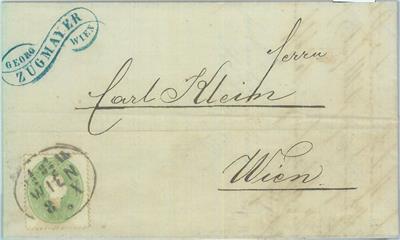 GEORG
ZUGMAYER
WIEN
Herrn
Carl Klein
Wien
WIEN